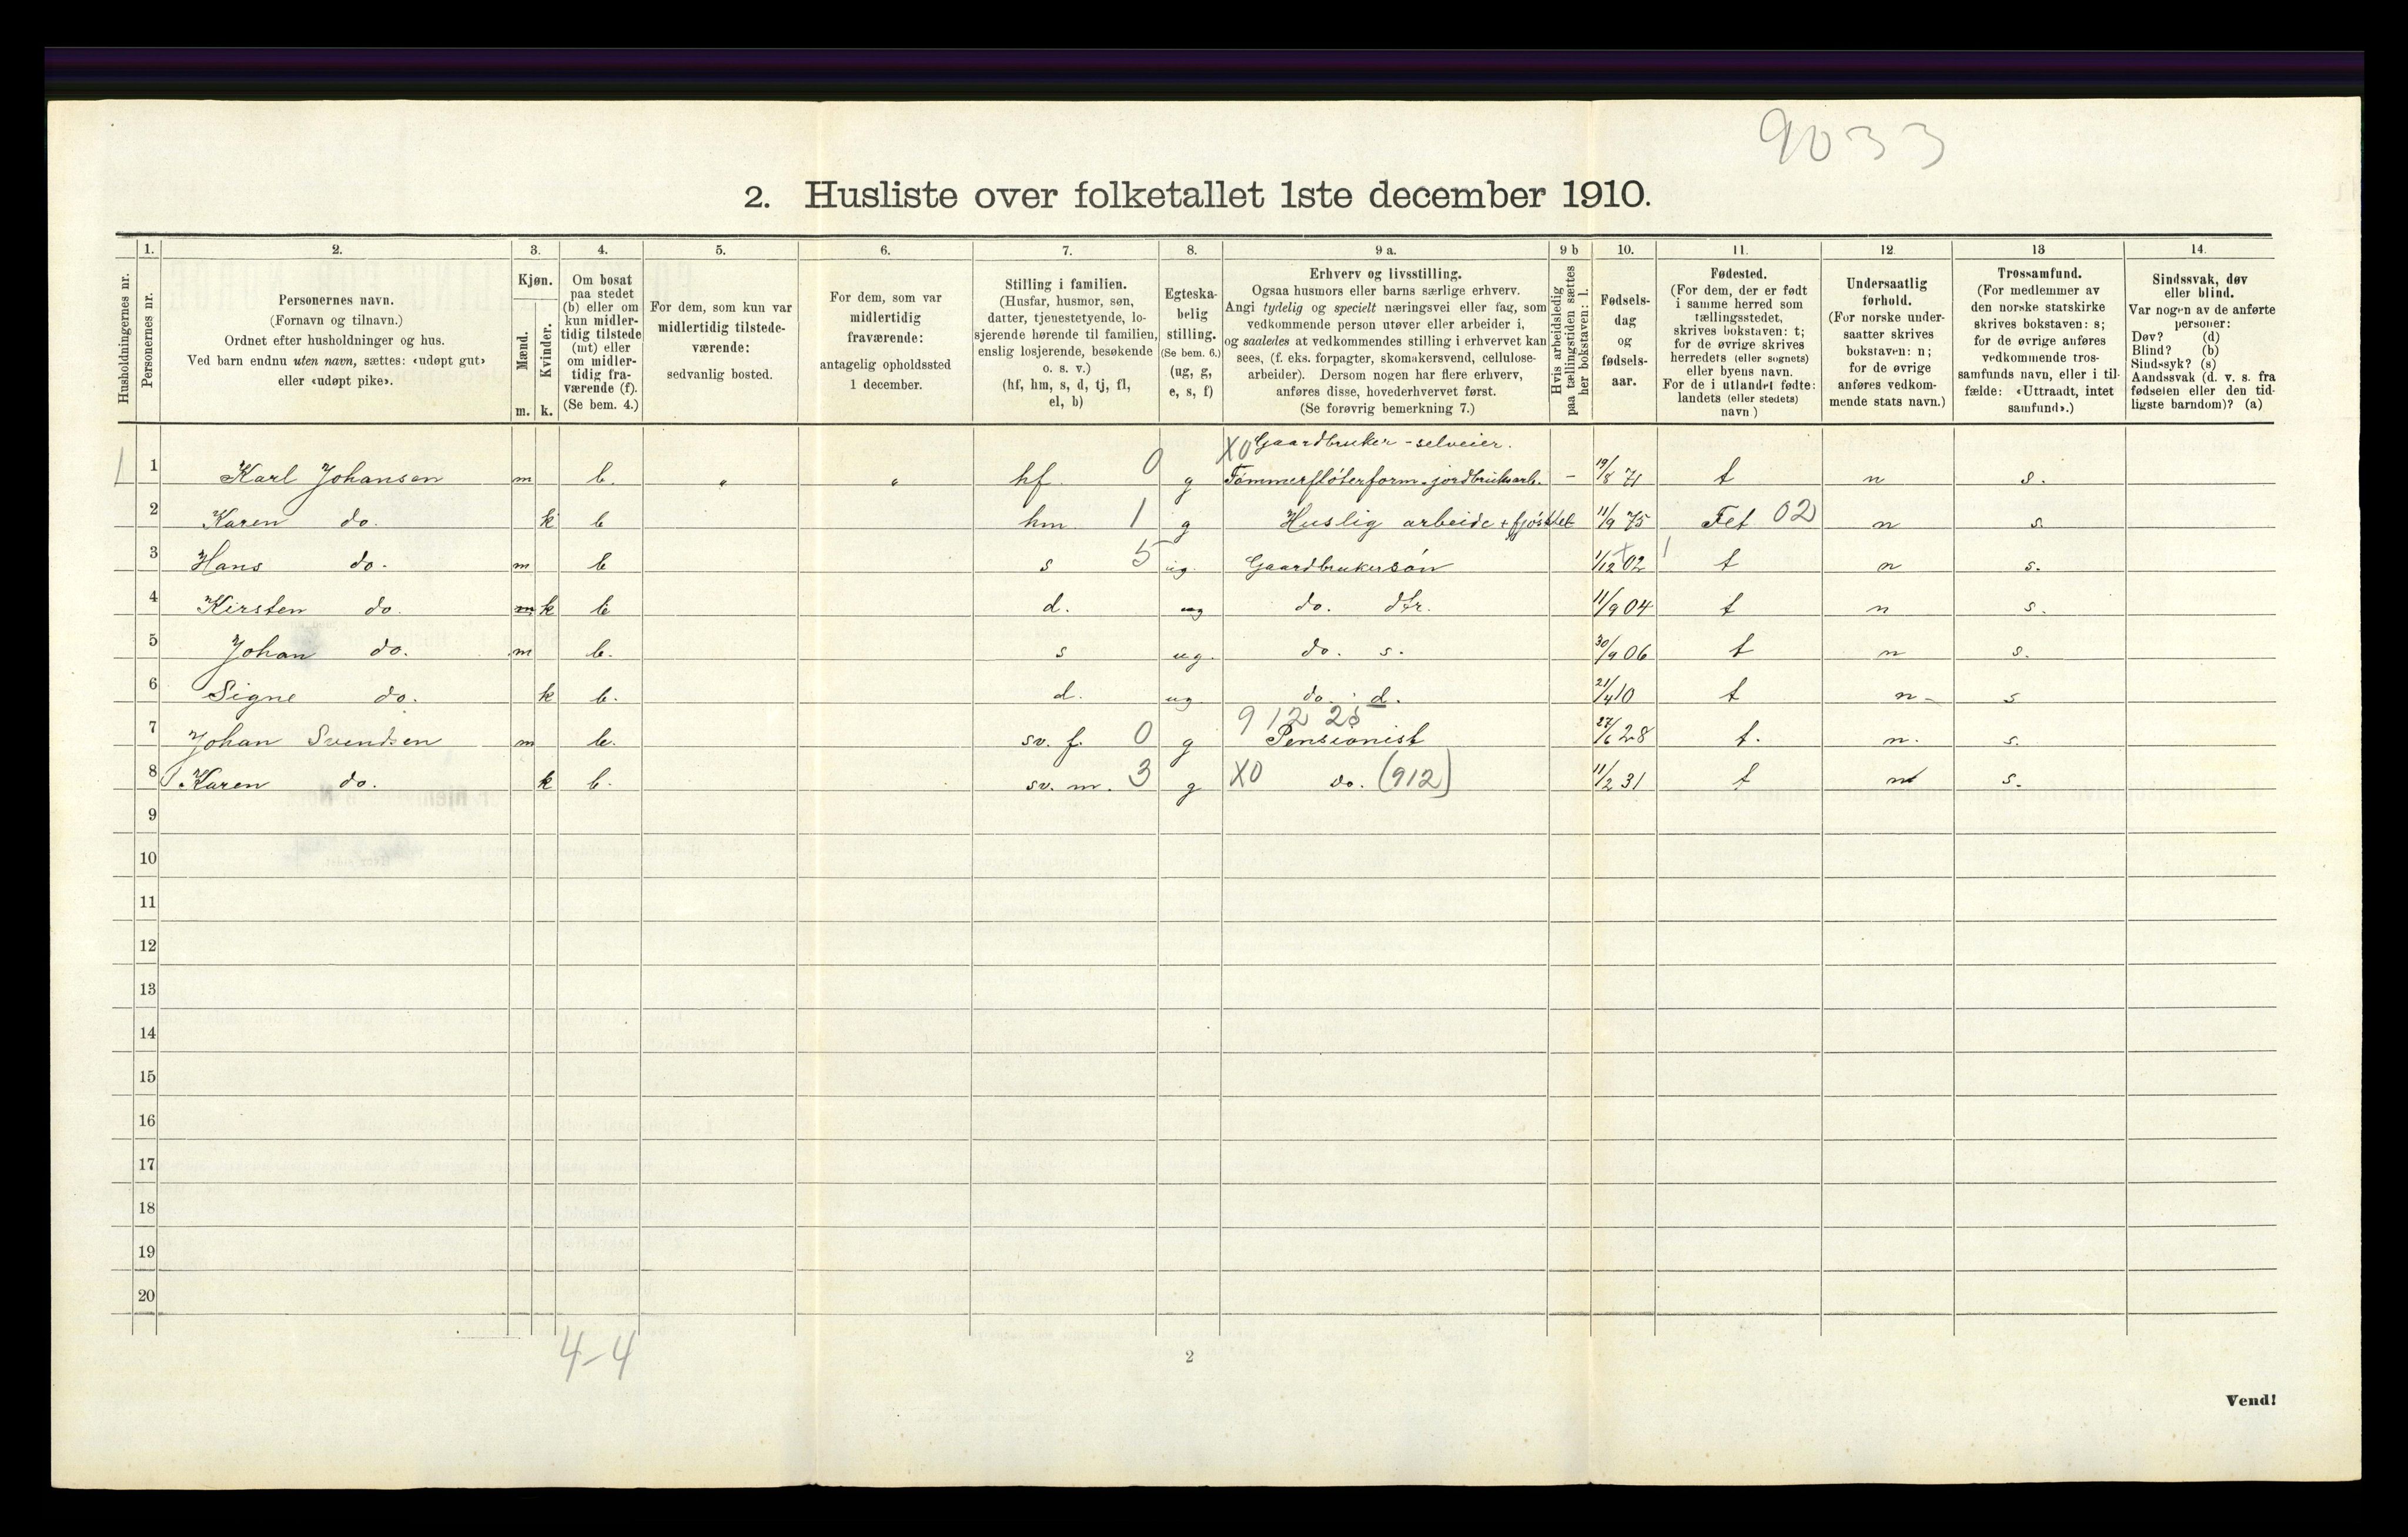 9033
2. Husliste over folketallet 1ste december 1910.
Husholdningernes nr.
1.
Personernes nr.
2.
Personernes navn.
(Fornavn og tilnavn.)
Ordnet efter husholdninger og hus.
Ved barn endnu uten navn, sættes: «udøpt gut»
eller «udøpt pike».
3.
Kjøn.
Mænd.
m.
Kvinder.
k.
4.
Om bosat
paa stedet
(b) eller om
kun midler-
tidig tilstede
(mt) eller
om midler-
tidig fra-
værende (f).
(Se bem. 4.)
5.
For dem, som kun var
midlertidig tilstede-
værende:
sedvanlig bosted.
6.
For dem, som var
midlertidig
fraværende:
antagelig opholdssted
1 december.
7.
Stilling i familien.
(Husfar, husmor, søn,
datter, tjenestetyende, lo-
sjerende hørende til familien,
enslig losjerende, besøkende
o. s. v.)
(hf, hm, s, d, tj, fl,
el, b)
8.
Egteska-
belig
stilling.
(Se bem. 6.)
(ug, g,
e, s, f)
9 a.
Erhverv og livsstilling.
Ogsaa husmors eller barns særlige erhverv.
Angi tydelig og specielt næringsvei eller fag, som
vedkommende person utøver eller arbeider i,
og saaledes at vedkommendes stilling i erhvervet kan
sees, (f. eks. forpagter, skomakersvend, cellulose-
arbeider). Dersom nogen har flere erhverv,
anføres disse, hovederhvervet først.
(Se forøvrig bemerkning 7.)
9 b
Hvis arbeidsledig
paa tællingstiden sættes
her bokstaven: l.
10.
Fødsels-
dag
og
fødsels-
aar.
11.
Fødested.
(For dem, der er født
i samme herred som
tællingsstedet,
skrives bokstaven: t;
for de øvrige skrives
herredets (eller sognets)
eller byens navn.
For de i utlandet fødte:
landets (eller stedets)
navn)
12.
Undersaatlig
forhold.
(For norske under-
saatter skrives
bokstaven: n;
for de øvrige
anføres vedkom-
mende stats navn.)
13
Trossamfund.
(For medlemmer av
den norske statskirke
skrives bokstaven: s;
for de øvrige anføres
vedkommende tros-
samfunds navn, eller i til-
fælde: «Uttraadt, intet
samfund».)
14.
Sindssvak, døv
eller blind.
Var nogen av de anførte
personer:
Døv? (d)
Blind? (b)
Sindssyk? (s)
Aandssvak (d. v. s. fra
fødselen eller den tid-
ligste barndom)? (a)
X0 Gaardbruker - selveier.
1 1 Karl Johansen m b. " " hf. 0 g Tømmerfløterform. jordbruksarb. - 19/8 71 t n s.
2 Karen do. k b hm 1 g Huslig arbeide + fjøsstel 11/9 75 Fet 02 n s.
3 Hans do. m b s 5 ug. Gaardbrukersøn 1/12 02 1 t n s.
4 Kirsten do. m k b d. ug do. dtr. 11/9 04 t n s.
5 Johan do. m b. s ug. do. s. 30/9 06 t n s.
6 Signe do. k b. d. ug do. d. 21/4 10 t n - s
9 12 28
7 Johan Svendsen m b. sv. f. 0 g Pensionist 27/6 28 t. n. s.
8 Karen do. k b. sv. m. 3 g X0 do. (912) 11/2 31 t n s.
9
10
11
12
13
14
15
16
17
18
19
20
4-4
2
Vend!